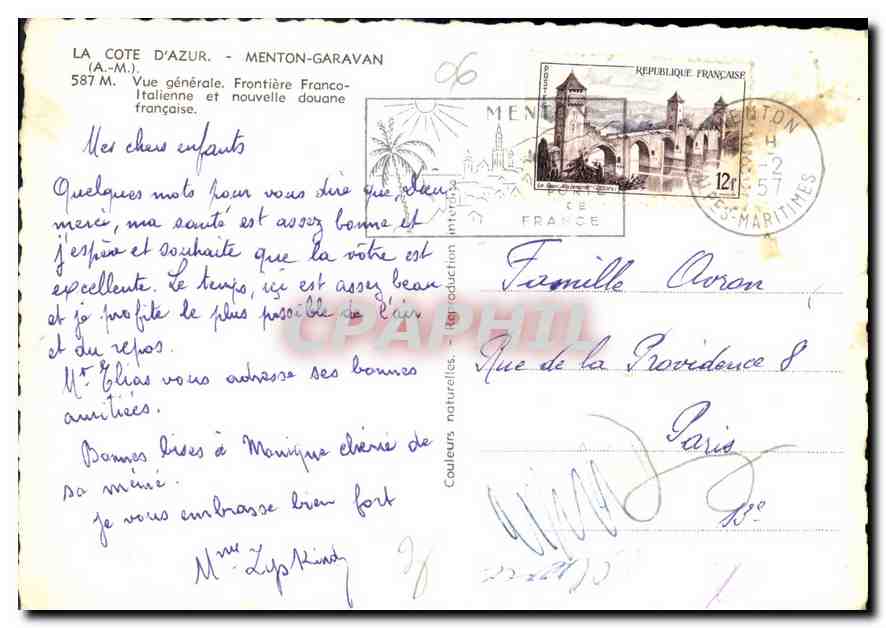 LA COTE D'AZUR. - MENTON-GARAVAN
(A.-M.).
587 M. Vue générale. Frontière Franco-
Italienne et nouvelle douane
française.
Mes chers enfants
Quelques mots pour vous dire que, dieu
merci, ma santé est assez bonne et
j'espère et souhaite que la vôtre est
excellente. Le temps, içi est assez beau
et je profite le plus possible de l'air
et du repos.
Mr Elias vous adresse ses bonnes
amitiées.
Bonnes bises à Monique chérie de
sa mémé.
Je vous embrasse bien fort
Mme Zypkind
Couleurs naturelles. - Reproduction interdite
06
MENTON
DE
FRANCE
POSTES
REPUBLIQUE FRANÇAISE
12F
MENTON
H
-2
57
ALPES-MARITIMES
Famille Avron
Rue de la Providence 8
Paris
13e
CPAPHIL